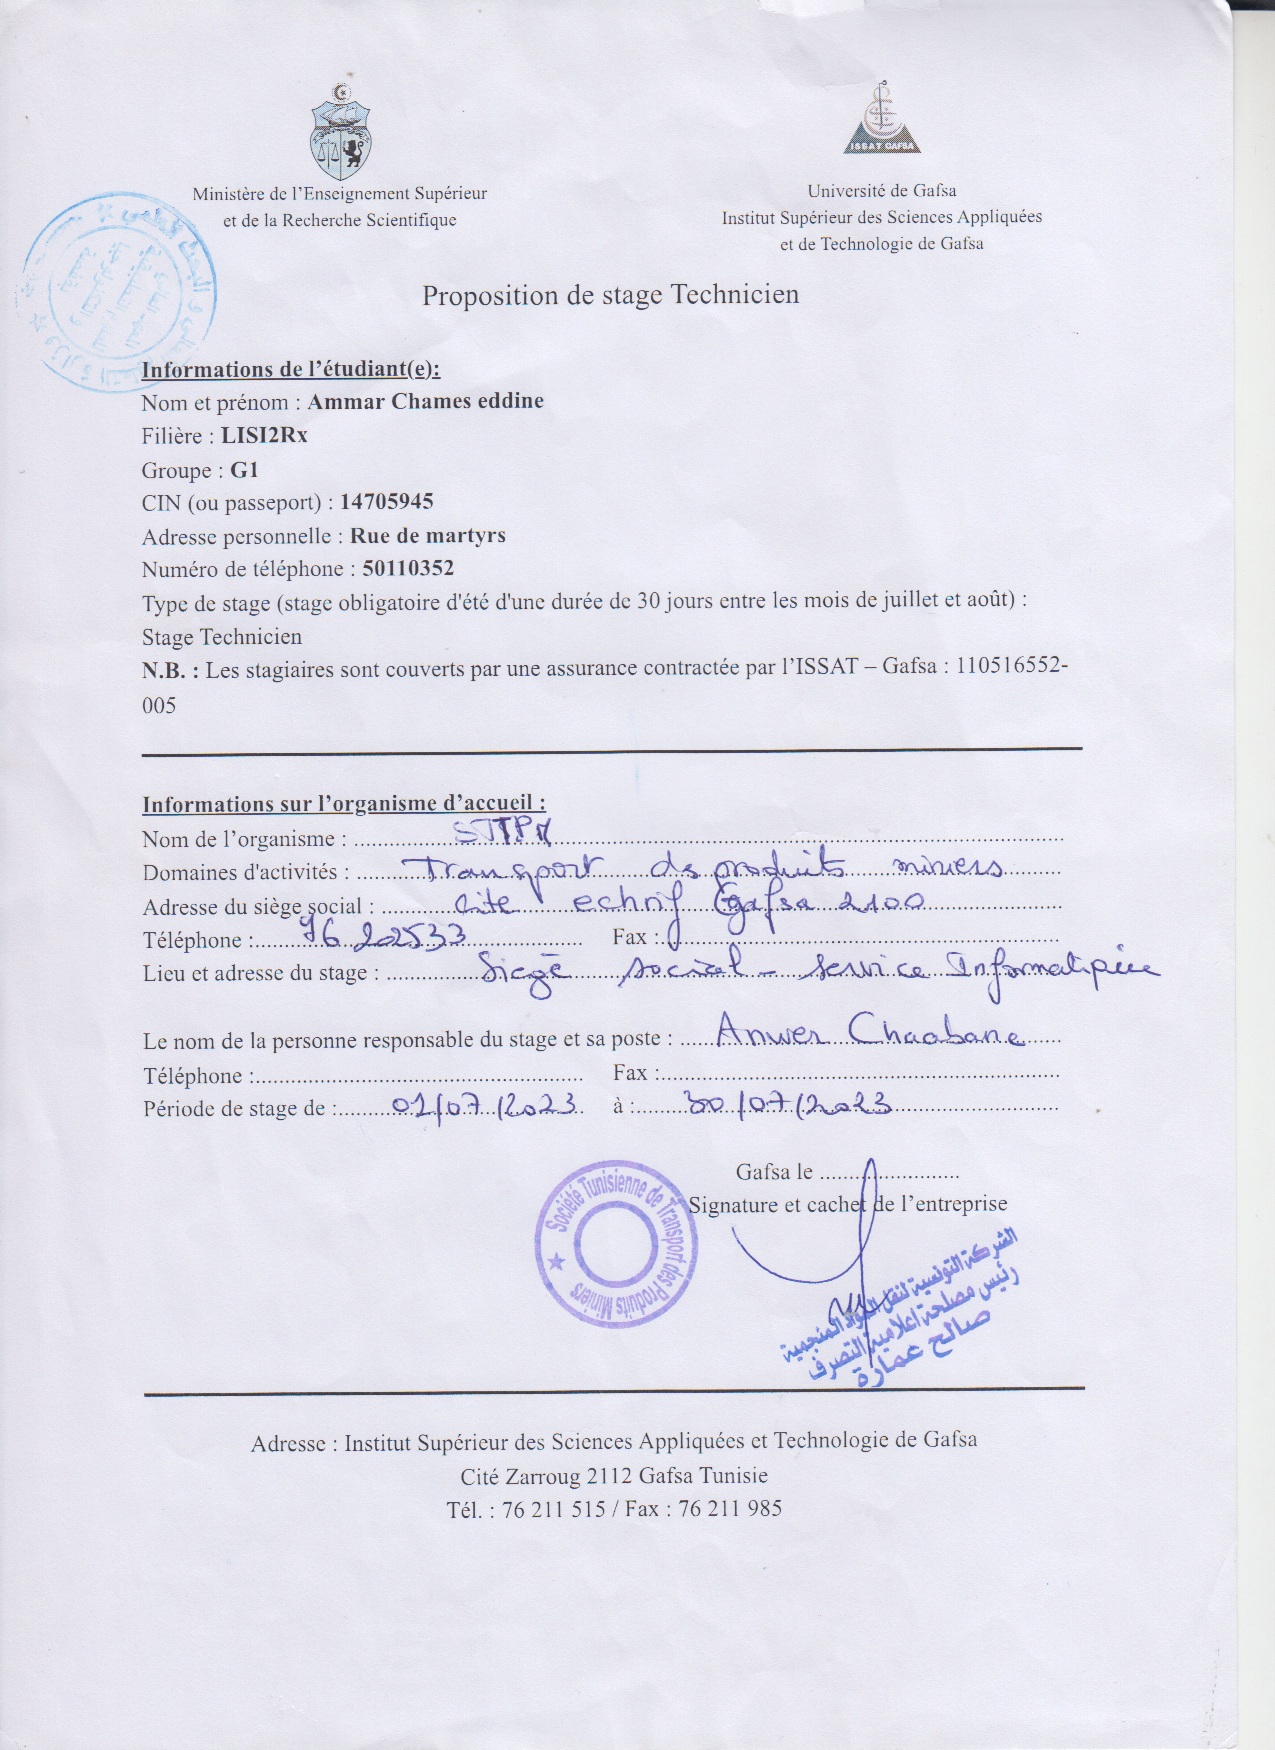 ISSAT GAFSA
Ministère de l'Enseignement Supérieur
et de la Recherche Scientifique
Université de Gafsa
Institut Supérieur des Sciences Appliquées
et de Technologie de Gafsa
Proposition de stage Technicien
Informations de l'étudiant(e):
Nom et prénom : Ammar Chames eddine
Filière : LISI2Rx
Groupe : G1
CIN (ou passeport) : 14705945
Adresse personnelle : Rue de martyrs
Numéro de téléphone : 50110352
Type de stage (stage obligatoire d'été d'une durée de 30 jours entre les mois de juillet et août) :
Stage Technicien
N.B. : Les stagiaires sont couverts par une assurance contractée par l'ISSAT – Gafsa : 110516552-
005
Informations sur l'organisme d'accueil :
Nom de l'organisme : STTPM
Domaines d'activités : Transport des produits miniers
Adresse du siège social : Cite Gafsa 2100
Téléphone : 76 202533 Fax :
Lieu et adresse du stage : Siège social - Service Informatique
Le nom de la personne responsable du stage et sa poste : Anwer Chaabane
Téléphone : Fax :
Période de stage de : 01/07/2023 à : 30/07/2023
Gafsa le
Signature et cachet de l'entreprise
Société Tunisienne de Transport des Produits Miniers
الشركة التونسية لنقل المواد المنجمية
رئيس مصلحة اعلامية التصرف
صالح عمارة
Adresse : Institut Supérieur des Sciences Appliquées et Technologie de Gafsa
Cité Zarroug 2112 Gafsa Tunisie
Tél. : 76 211 515 / Fax : 76 211 985